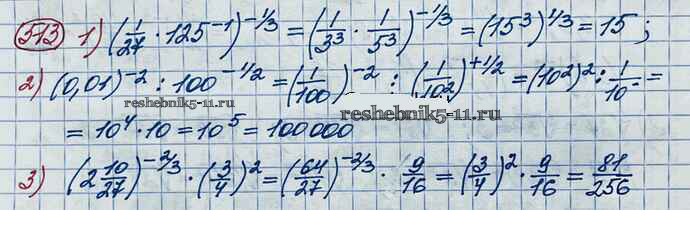 513 1) (1/27 · 125^-1)^-1/3 = (1/3^3 · 1/5^3)^-1/3 = (15^3)^1/3 = 15 ;
2) (0,01)^-2 : 100^-1/2 = (1/100)^-2 : (1/10^2)^+1/2 = (10^2)^2 : 1/10 =
reshebnik5-11.ru
reshebnik5-11.ru
= 10^4 · 10 = 10^5 = 100 000
3) (2 10/27)^-2/3 · (3/4)^2 = (64/27)^-2/3 · 9/16 = (3/4)^2 · 9/16 = 81/256